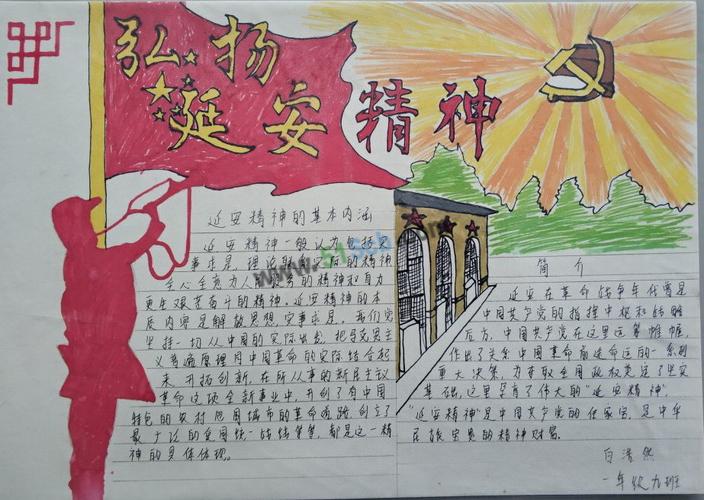 弘扬
延安精神
延安精神的基本内涵
延安精神一般认为包括实
事求是,理论联系实际的精神
全心全意为人民服务的精神和自力
更生艰苦奋斗的精神。延安精神的本
质内容是解放思想,实事求是,我们党
坚持一切从中国的实际出发,把马克思主
义普遍原理同中国革命的实际结合起
来 开拓创新,在所从事的新民主主义
革命这项全新事业中,开创了有中国
特色的农村包围城市的革命道路,创立了
最广泛的爱国统一战线等等,都是这一精
神的具体体现。
简介
延安在革命战争年代曾是
中国共产党的指挥中枢和战略
后方,中国共产党在这里运筹帷幄,
作出了关系中国革命前途命运的一系列
重大决策,为夺取全国政权奠定了坚实
基础,这里孕育了伟大的"延安精神",
"延安精神"是中国共产党的传家宝,是中华
民族宝贵的精神财富。
一年级九班